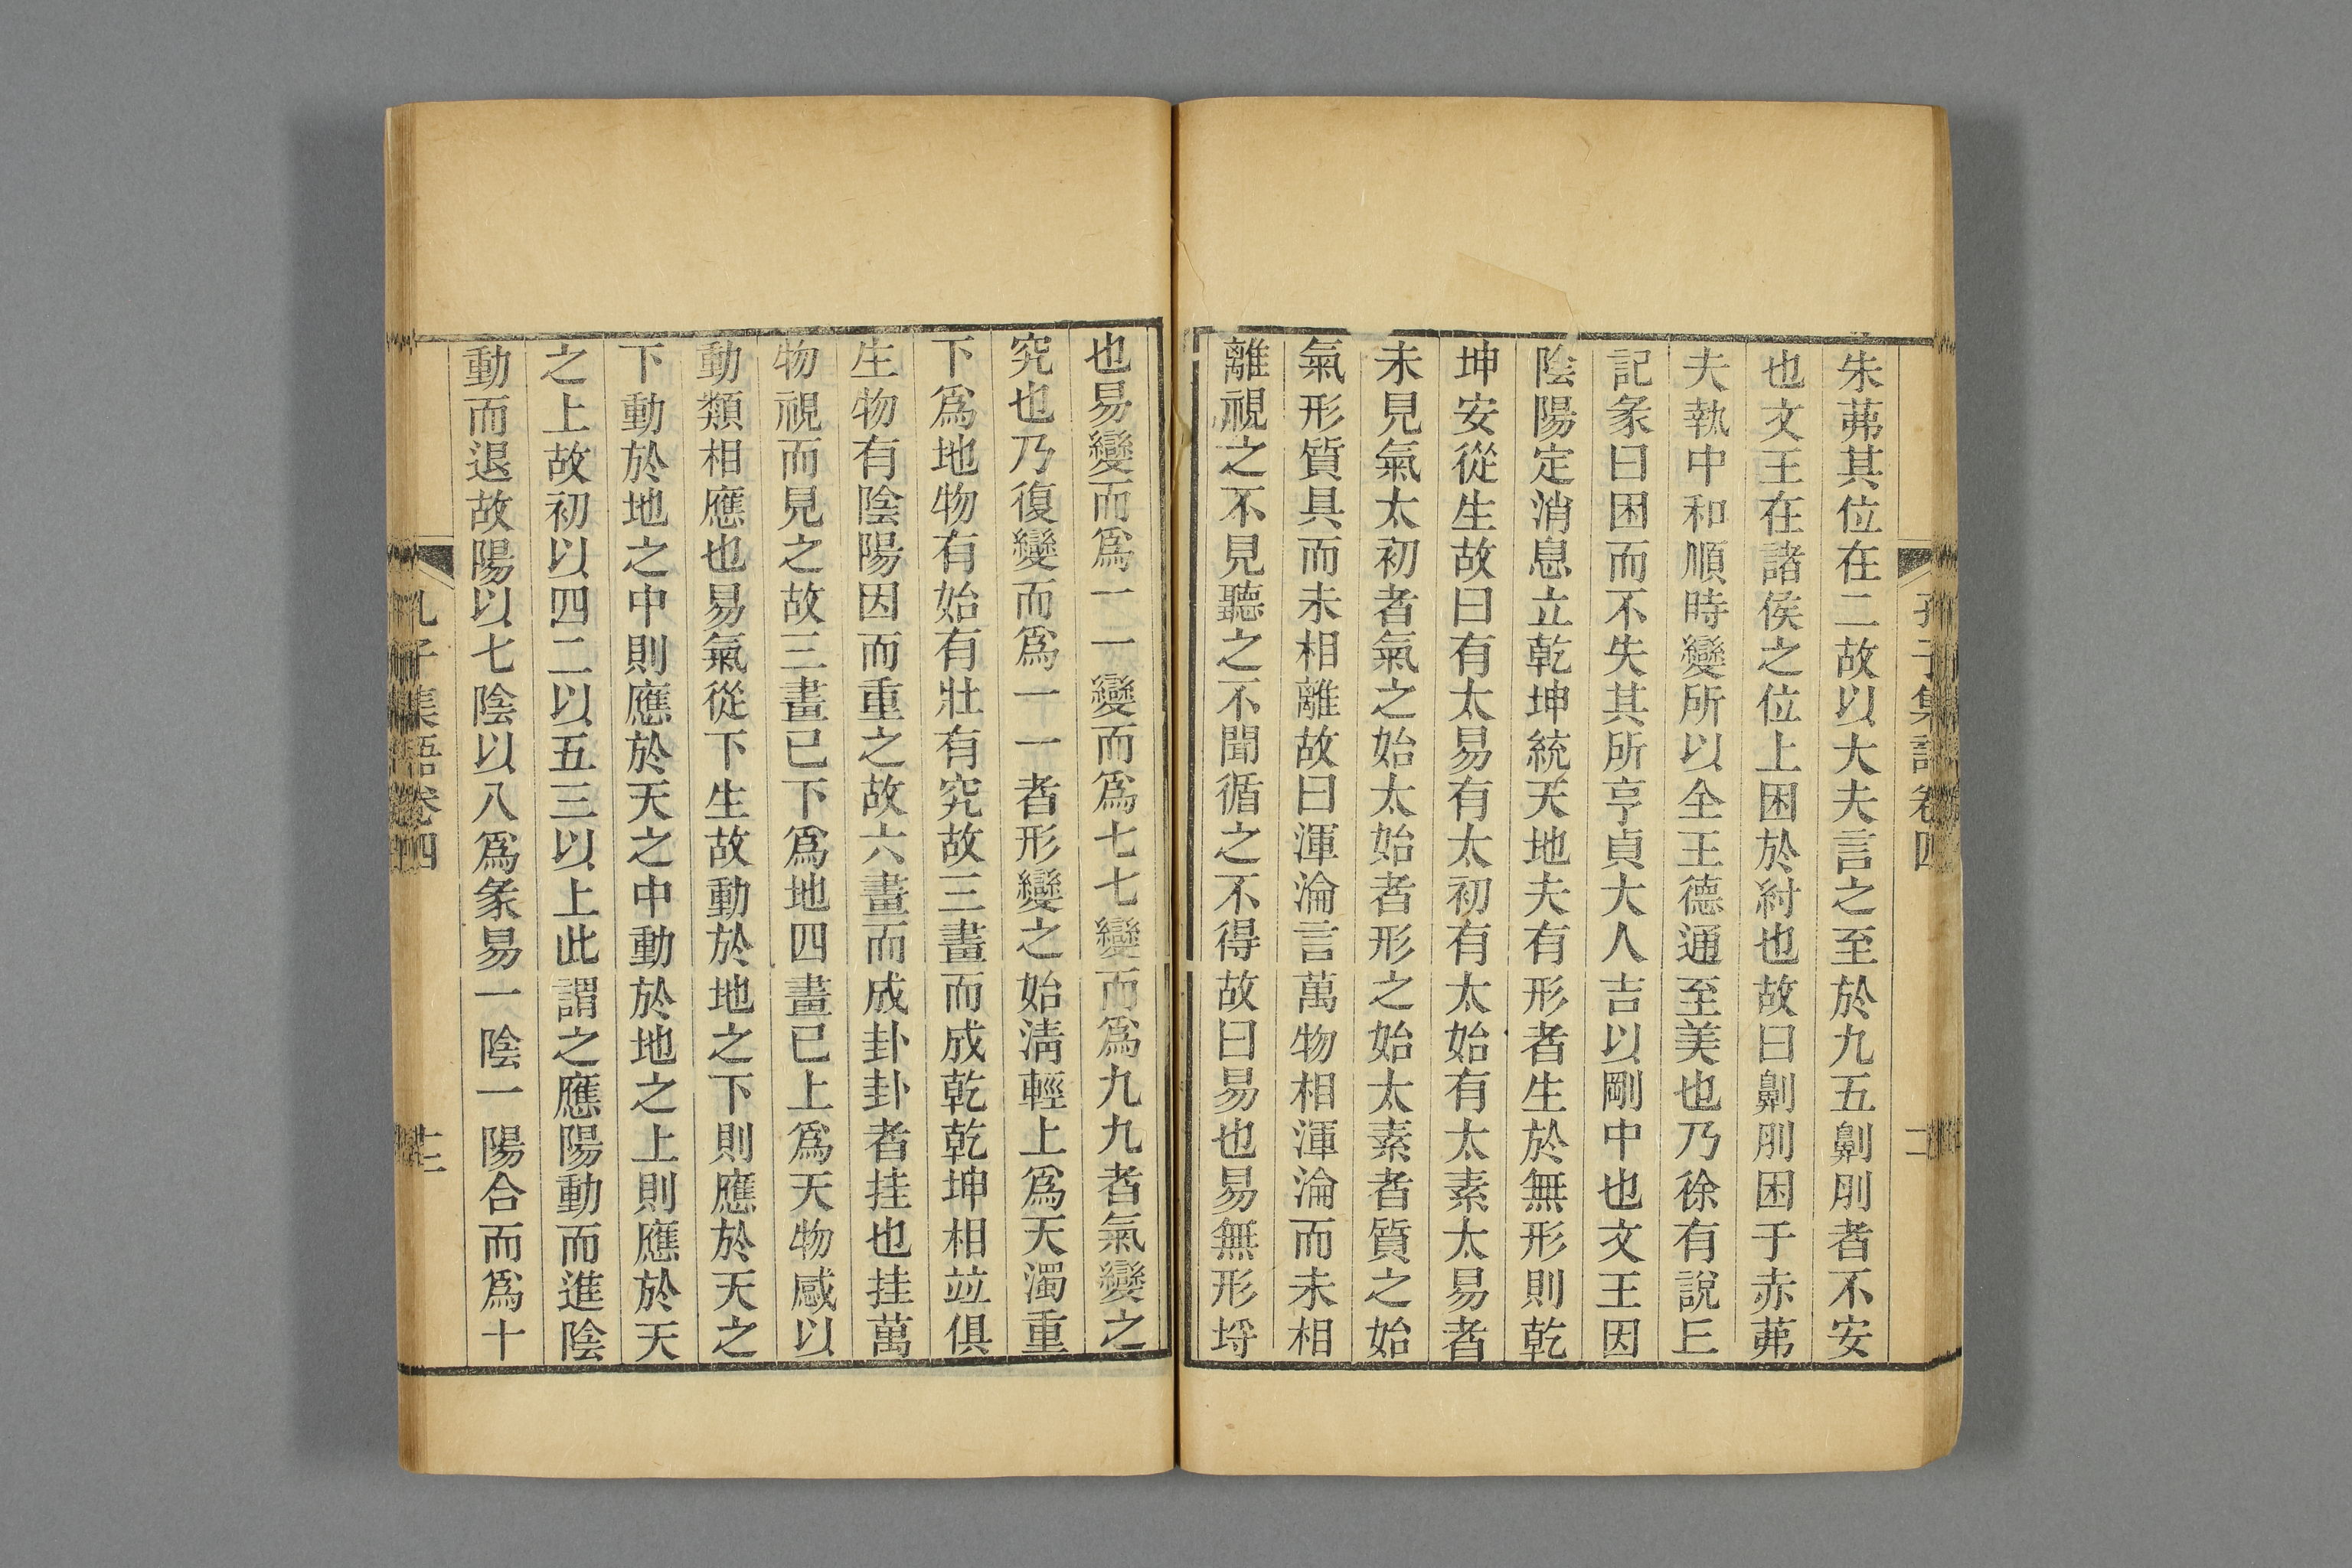 朱茀其位在二故以大夫言之至於九五劓刖者不安
也文王在諸侯之位上困於紂也故曰劓刖困于赤茀
夫執中和順時變所以全王德通至美也乃徐有說㠯
記彖曰困而不失其所亨貞大人吉以剛中也文王因
陰陽定消息立乾坤統天地夫有形者生於無形則乾
坤安從生故曰有太易有太初有太始有太素太易者
未見氣太初者氣之始太始者形之始太素者質之始
氣形質具而未相離故曰渾淪言萬物相渾淪而未相
離視之不見聽之不聞循之不得故曰易也易無形埒
也易變而爲一一變而爲七七變而爲九九者氣變之
究也乃復變而爲一一者形變之始淸輕上爲天濁重
下爲地物有始有壯有究故三畫而成乾乾坤相竝俱
生物有陰陽因而重之故六畫而成卦卦者挂也挂萬
物視而見之故三畫已下爲地四畫已上爲天物感以
動類相應也易氣從下生故動於地之下則應於天之
下動於地之中則應於天之中動於地之上則應於天
之上故初以四二以五三以上此謂之應陽動而進陰
動而退故陽以七陰以八爲彖易一陰一陽合而爲十
孔子集語卷四